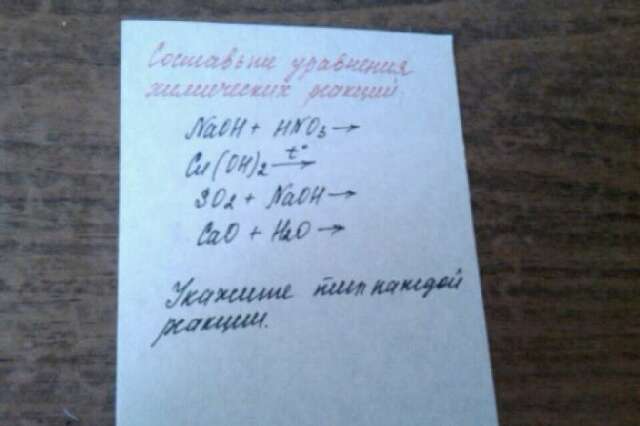 Составьте уравнения
химических реакций.
NaOH + HNO₃ →
Cu(OH)₂ t° →
SO₂ + NaOH →
CaO + H₂O →
Укажите тип каждой
реакции.